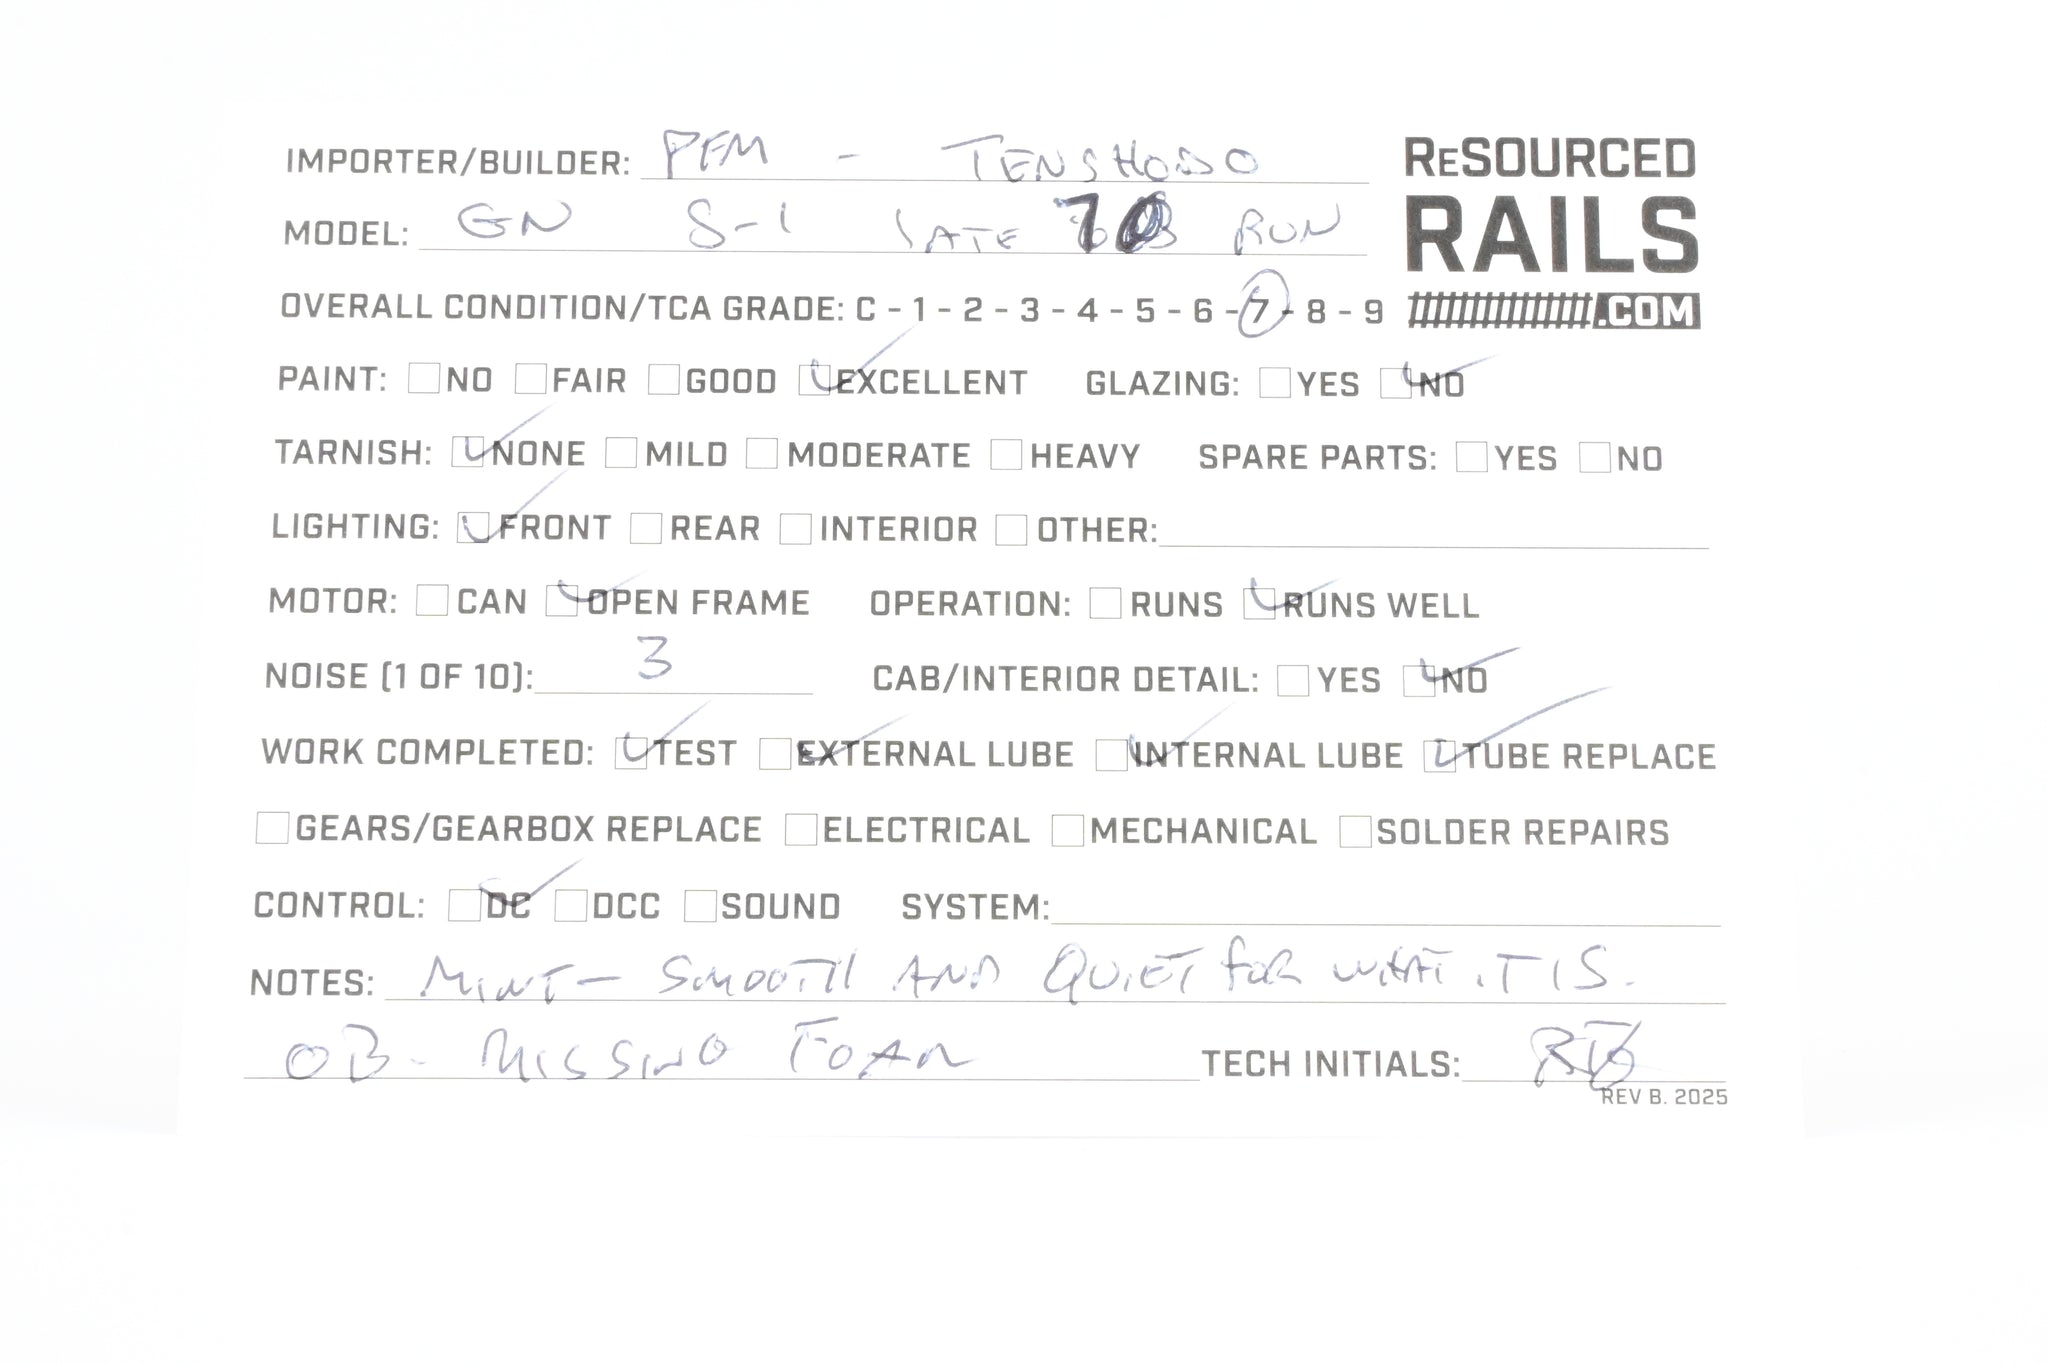 IMPORTER/BUILDER: PFM - TENSHODO
ReSOURCED
RAILS
.COM
MODEL: GN S-1 LATE 70 RUN
OVERALL CONDITION/TCA GRADE: C - 1 - 2 - 3 - 4 - 5 - 6 - 7 - 8 - 9
PAINT: NO FAIR GOOD EXCELLENT GLAZING: YES NO
TARNISH: NONE MILD MODERATE HEAVY SPARE PARTS: YES NO
LIGHTING: FRONT REAR INTERIOR OTHER:
MOTOR: CAN OPEN FRAME OPERATION: RUNS RUNS WELL
NOISE (1 OF 10): 3 CAB/INTERIOR DETAIL: YES NO
WORK COMPLETED: TEST EXTERNAL LUBE INTERNAL LUBE TUBE REPLACE
GEARS/GEARBOX REPLACE ELECTRICAL MECHANICAL SOLDER REPAIRS
CONTROL: DC DCC SOUND SYSTEM:
NOTES: MINT - SMOOTH AND QUIET FOR WHAT IT IS.
OB - MISSING FOAM TECH INITIALS:
REV B. 2025